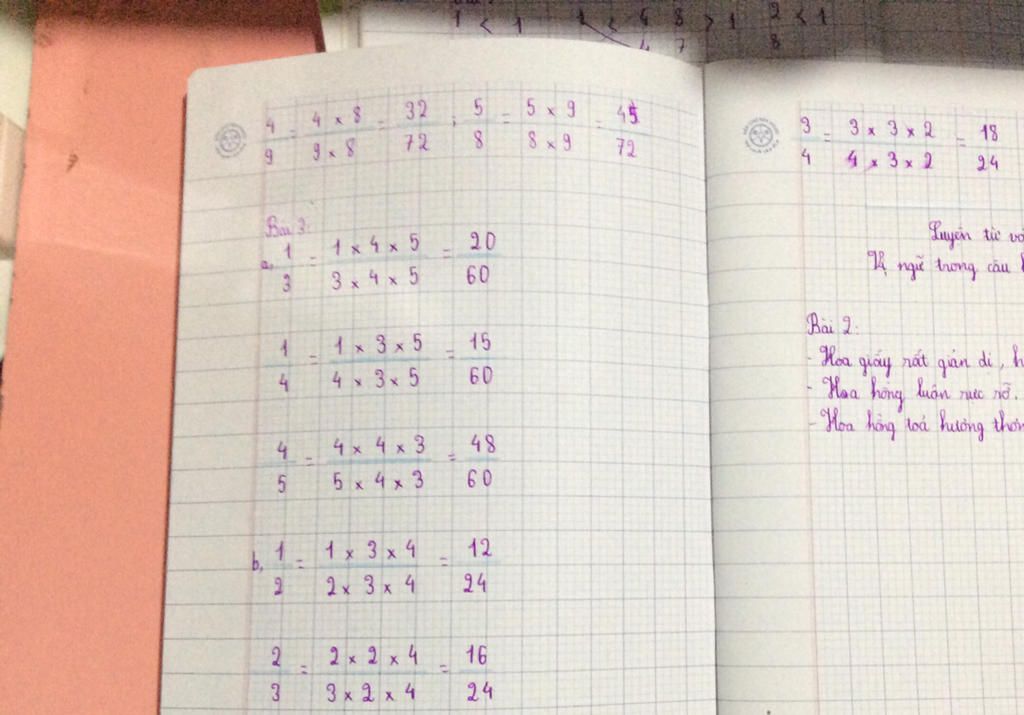 1/4 < 1 < 4/4 8/7 > 1 2/8 < 1
4/9 = 4 × 8 / 9 × 8 = 32/72 ; 5/8 = 5 × 9 / 8 × 9 = 45/72
Bài 3:
a, 1/3 = 1 × 4 × 5 / 3 × 4 × 5 = 20/60
1/4 = 1 × 3 × 5 / 4 × 3 × 5 = 15/60
4/5 = 4 × 4 × 3 / 5 × 4 × 3 = 48/60
b, 1/2 = 1 × 3 × 4 / 2 × 3 × 4 = 12/24
2/3 = 2 × 2 × 4 / 3 × 2 × 4 = 16/24
3/4 = 3 × 3 × 2 / 4 × 3 × 2 = 18/24
Luyện từ và
Vị ngữ trong câu
Bài 2:
- Hoa giấy rất giản dị, h
- Hoa hồng luôn rực rỡ.
- Hoa hồng toả hương thơm